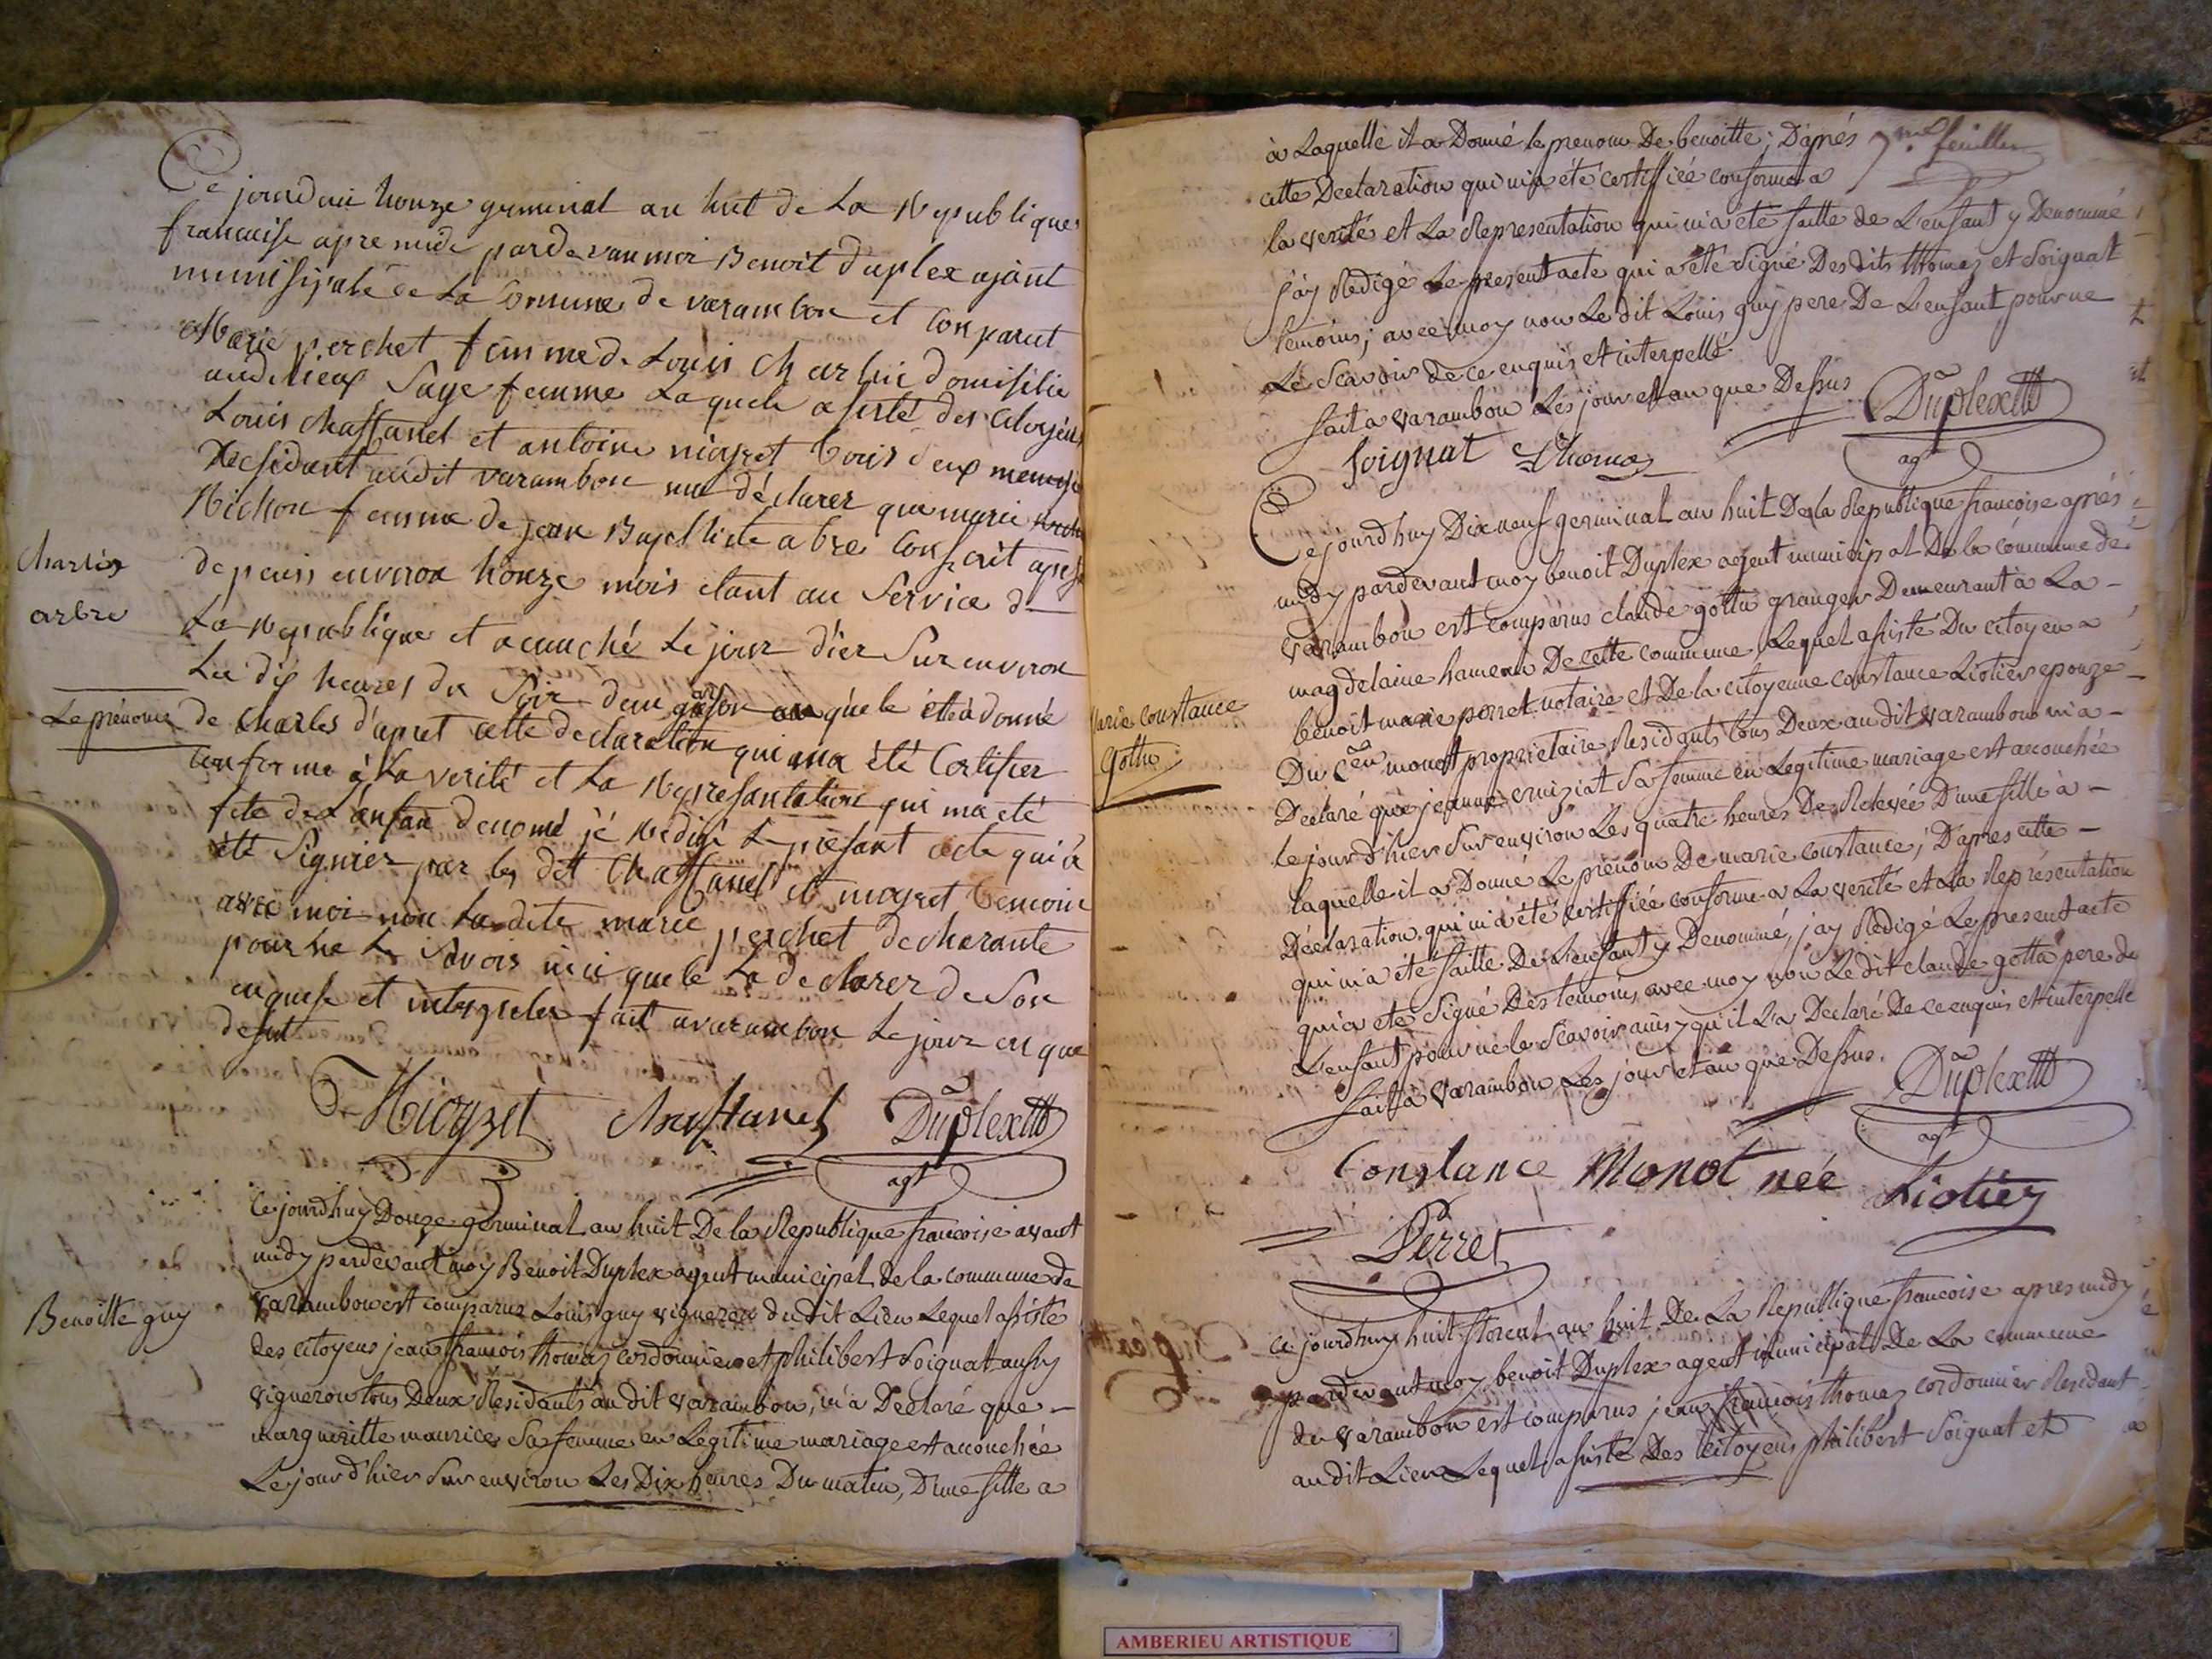 Ce jourdui honze germinal an huit de La Republique
francaise apre midi pardevan moi Benoit duplex ajant
munisipale de La Comune de varambon et Conparut
Marie perchet femme de Louis Charlin domisilie
audi lieux Sage femme Laquele asisté des Citoyens
Louis Chaffanel et antoine
Residant audit varambon ma déclarer que marie
Michon femme de jean Baptiste abre Conscrit
de peuis environ honze mois etant au Service d
La Republique et acouché Le jour d'ier Sur environ
Les dix heures du Soir dun garson auquele ette a donné
Charles
arbre
Le prénome
de Charles d'apret cette declaration qui ma été Certifier
conforme à La verité et La Represantation qui ma eté
fete de L'enfan denomé jé Redigé Le presant acte qui a
été Signier par les dit Chaffanel et temoin
avec moi non La dite marie perchet declarante
pour ne Le Savoir queele La declarer de Son
enquise et fait a varambon Le jour en que
desut
Chaffanel Duplex
agt
Ce jourd'huy Douze germinal an huit De la Republique francoise avant
midy pardevant moy Benoit Duplex agent municipal de la commune de
varambon est comparus Louis guy vigneron du dit Lieu Lequel assisté
Benoitte guy
des citoyens jean francois thomas cordonnier et philibert Soignat aussy
vigneron tous Deux Residants au dit varambon, m'a Declaré que
margueritte maurice Sa femme en Legitime mariage est accouchée
Le jour d'hier Sur environ Les Dix heures Du matin, D'une fille a
7me feuillet
à Laquelle il a Donné le prenom De benoitte; D'aprés
cette Declaration qui m'a été certiffiée conforme a
la verité et La Representation qui m'a été faitte de L'enfant y Denommé
j'ay Redigé Le present acte qui a été signé Des dits thomas et Soignat
temoins; avec moy non Le dit Louis guy pere De L'enfant pour ne
Le Scavoir de ce enquis et interpellé.
fait a varambon Les jour et an que Dessus
Soignat Thomas Duplex
agt
Ce jourd'huy Dix neuf germinal an huit De la Republique francoise aprés
midy pardevant moy benoit Duplex agent municipal De la commune de
varambon est comparus claude gotta granger Demeurant à La
magdelaine hameau De cette commune Lequel assisté Du citoyen
benoit marie perret notaire et De la citoyenne constance Liotier epouze
Marie Constance
Gotta
Du Cen monot proprietaire Residents tous Deux au dit varambon m'a
Declaré que jeanne Sa femme en Legitime mariage est accouchée
le jour d'hier Sur environ Les quatre heures De Relevée D'une fille à
laquelle il a Donné Le prenom De marie constance; D'apres cette
Declaration qui m'a été certiffiée conforme a La verité et La Representation
qui m'a été faitte De L'enfant y Denommé, j'ay Redigé Le present acte
qui a été Signé Des temoins avec moy non Le dit claude gotta pere de
L'enfant pour ne le Scavoir ainsy qu'il La Declaré De ce enquis et interpellé
fait à varambon Les jour et an que Dessus.
Duplex
agt
Constance Monot née Liotier
Perret
Ce jourd'huy huit floreal an huit De La Republique francoise apres midy
pardevant moy benoit Duplex agent municipal De La commune
de varambon est comparus jean francois thomas cordonnier Residant
au dit Lieu Lequel assisté Des Citoyens philibert Soignat et
AMBERIEU ARTISTIQUE